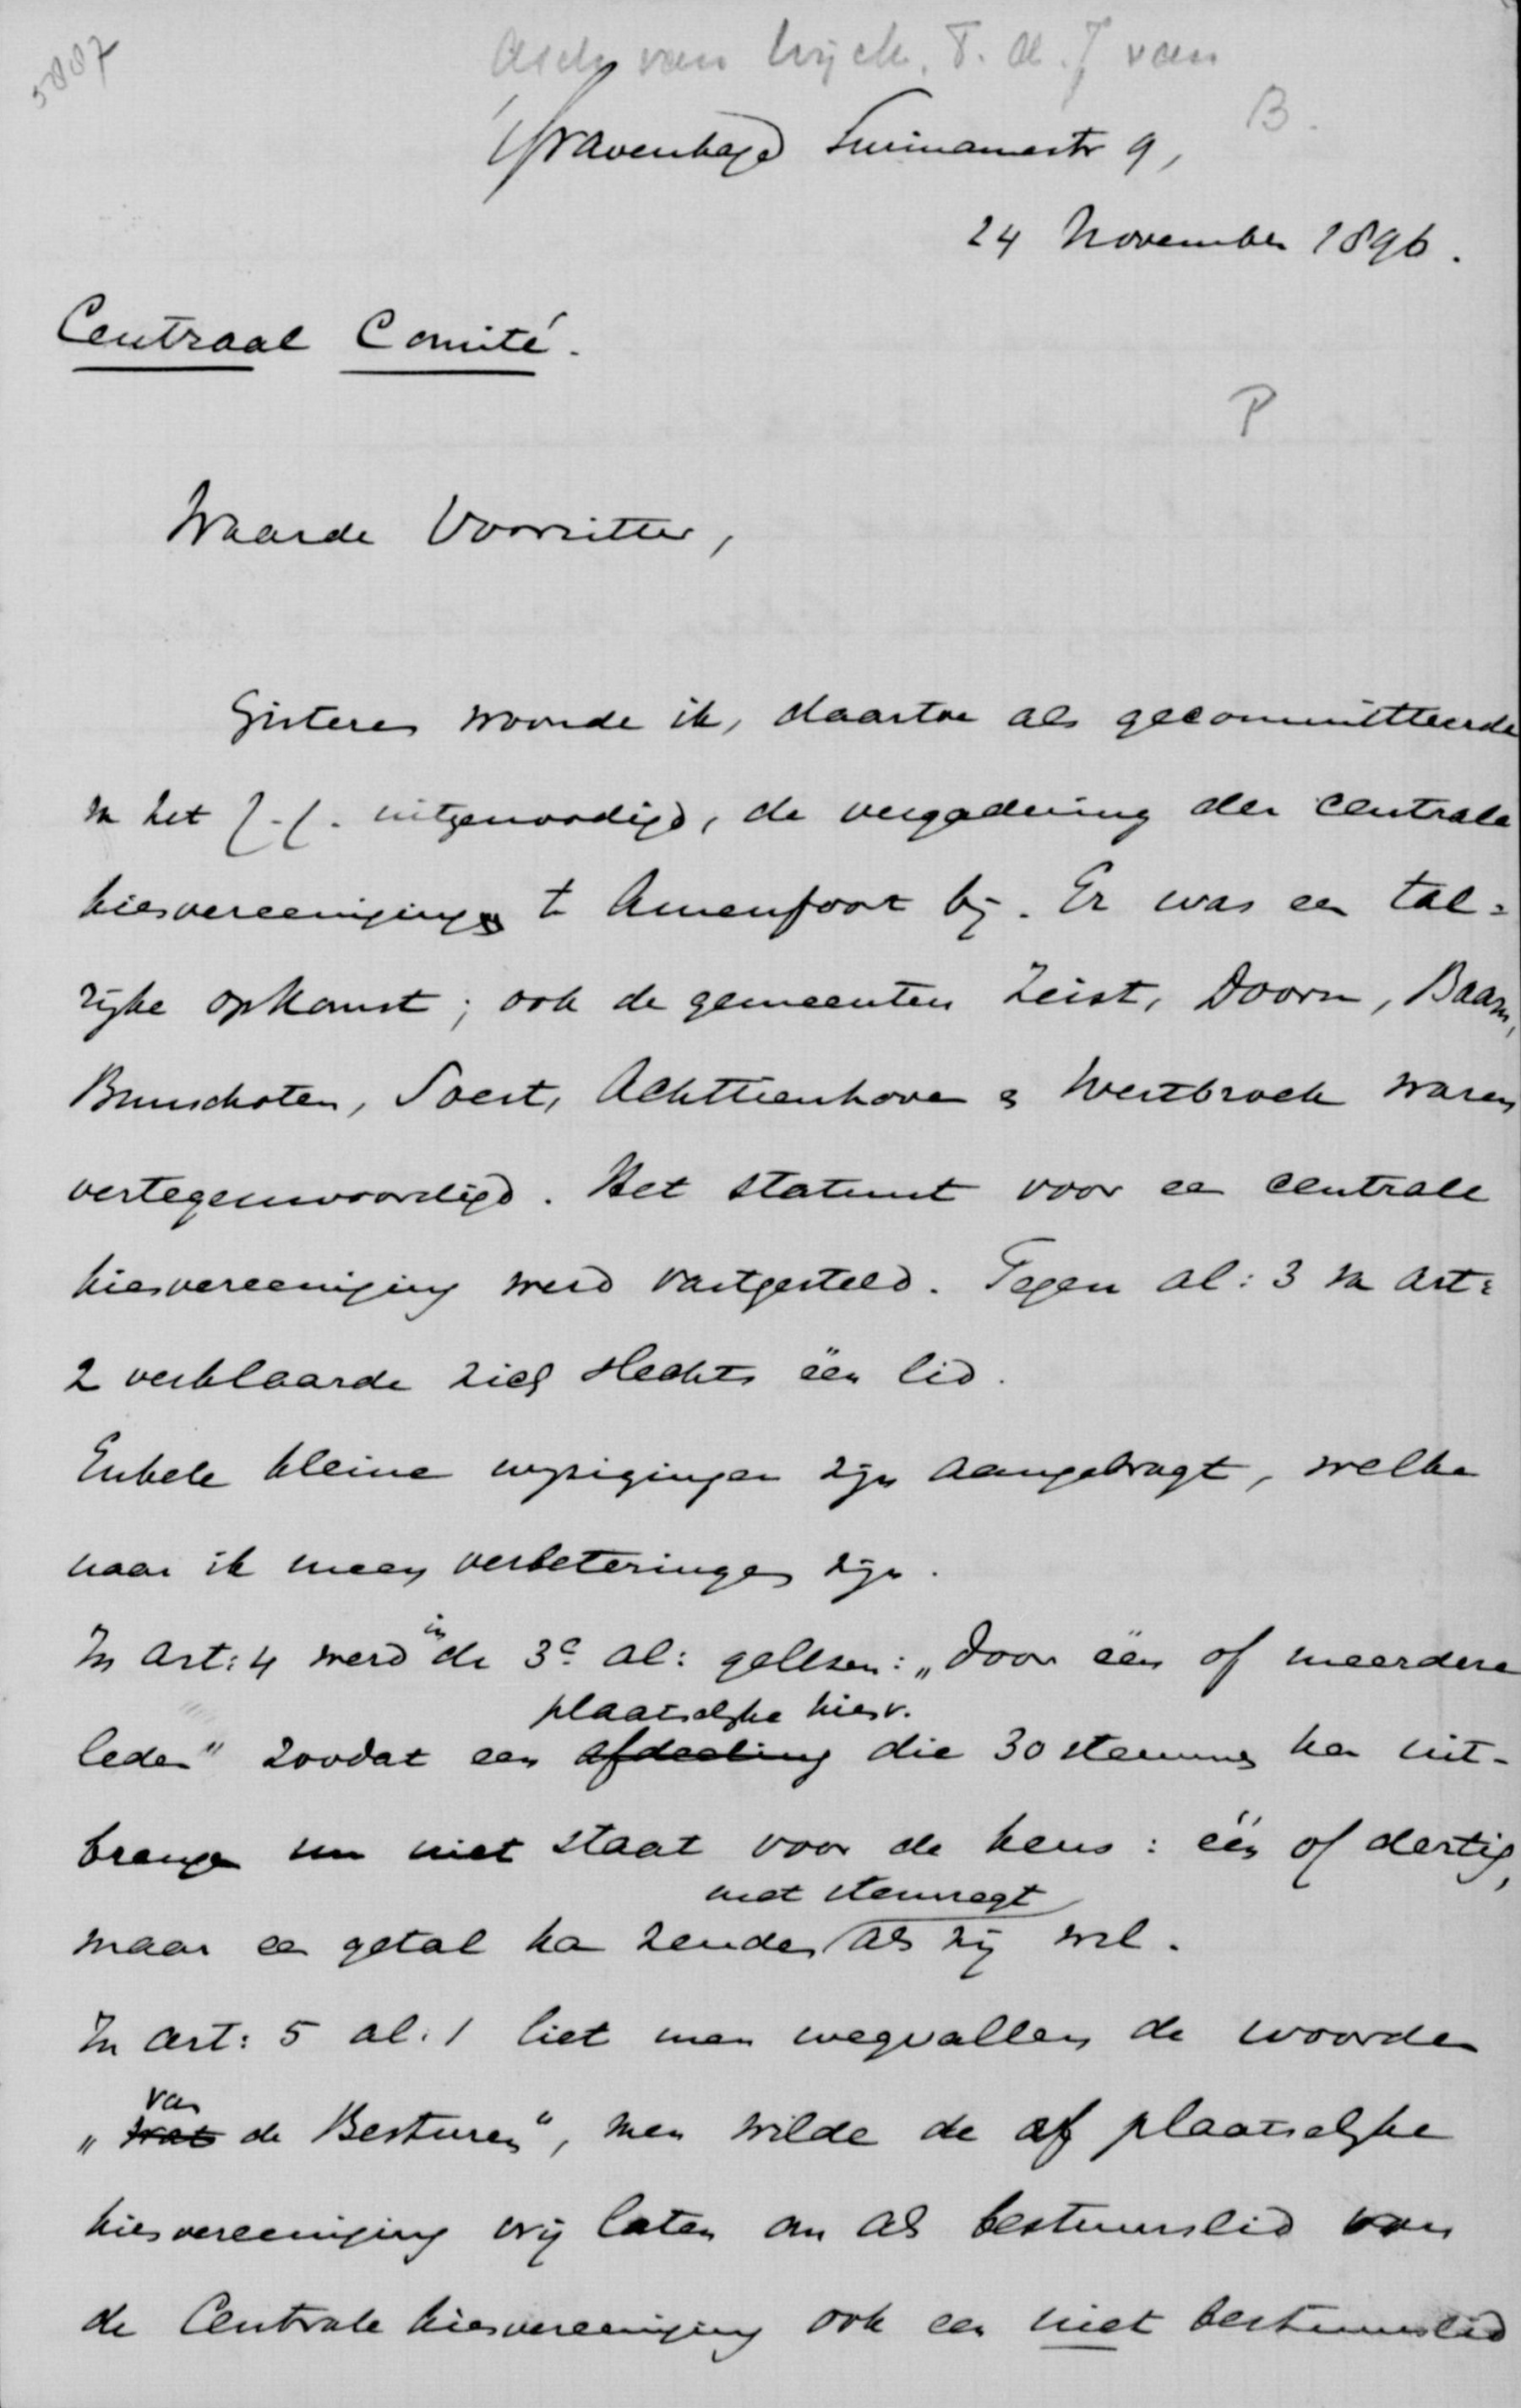 5887
Asch van Wijck. T. A. J van
B.
'sGravenhage Surinamestr 9,
24 November 1896.
Centraal Comité.
P
Waarde Voorzitter,
Gisteren woonde ik, daartoe als gecommitteerde
v. het C.C. uitgenoodigd, de vergadering der centrale
kiesvereeniging te Amersfoort bij. Er was een tal=
rijke opkomst; ook de gemeenten Zeist, Doorn, Baarn,
Bunschoten, Soest, Achttienhoven & Westbroek waren
vertegenwoordigd. Het statuut voor een centrale
kiesvereeniging werd vastgesteld. Tegen al: 3 v. art:
2 verklaarde zich slechts één lid.
Enkele kleine wijzigingen zijn aangebragt, welke
naar ik meen verbeteringen zijn.
In art: 4 werd in de 3e al: gelezen: „door één of meerdere
leden" zoodat een afdeeling plaatselijke kiesv. die 30 stemmen kan uit-
brengen nu niet staat voor de keus: één of dertig,
maar een getal kan zenden met stemregt als zij wil.
In art: 5 al: 1 liet men wegvallen de woorden
„wat van de Besturen", men wilde de af plaatselijke
kiesvereeniging vrij laten om als bestuurslid van
de Centrale kiesvereeniging ook een niet bestuurslid